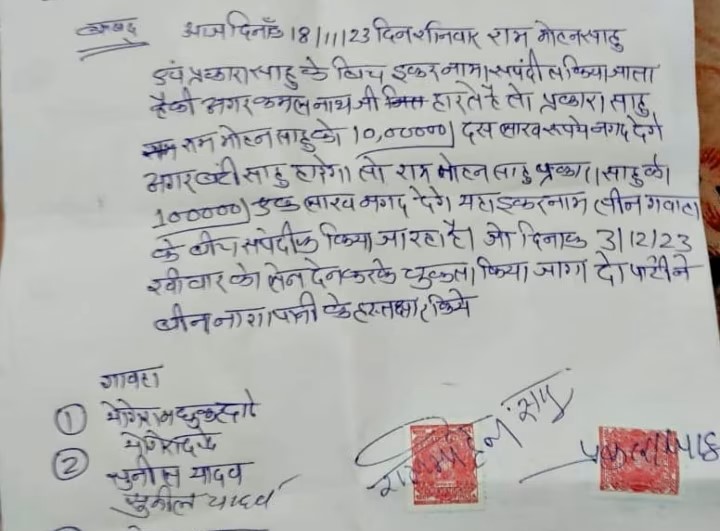 आज दिनाँक 18/11/23 दिन शनिवार राम मोहन साहु
एवं प्रकाश साहु के बिच इकरनामा संपंदीत किया जाता
है की अगर कमलनाथ जी हारते है तो प्रकाश साहु
राम मोहन साहु को 10,00000/ दस लाख रूपये नगद देगे
अगर बंटी साहु हारेगा तो राम मोहन साहु प्रकाश साहु को
100000/ एक लाख नगद देगे यहा इकरनाम तीन गवाहा
के बीच संपंदीत किया जा रहा है। जो दिनाक 3/12/23
रवीवार को लेन देन करके चुकता किया जागा दो पार्टी ने
बीन नाशा पानी के हस्तक्षार किये
गावहा
①
② सुनील यादव
सुनील यादव
राममोहन साहु
प्रकाश साहु